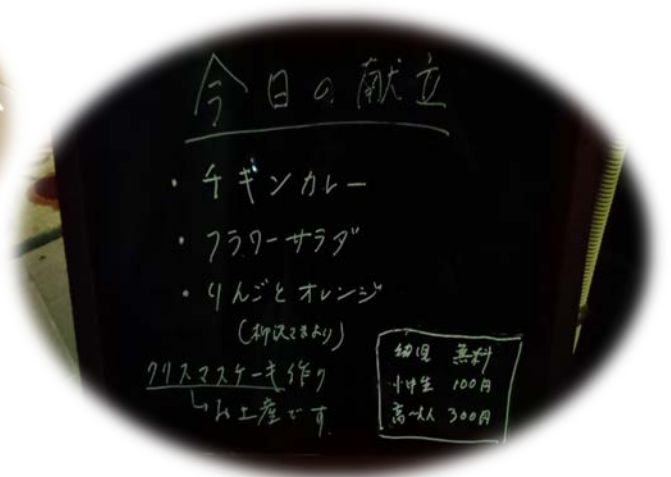 今日の献立
・チキンカレー
・フラワーサラダ
・りんごとオレンジ
(柳沢さまより)
クリスマスケーキ作り
↳お土産です
幼児 無料
小中生 100円
高〜大人 300円